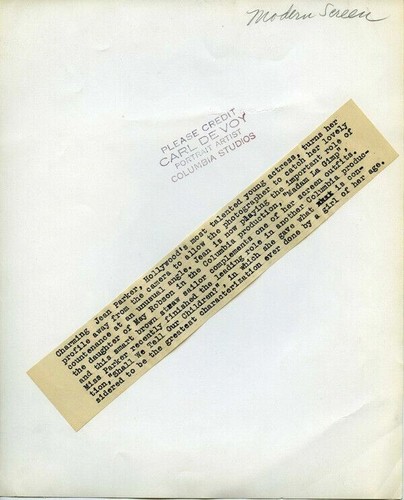 Modern Screen
PLEASE CREDIT
CARL DE VOY
PORTRAIT ARTIST
COLUMBIA STUDIOS
Charming Jean Parker, Hollywood's most talented young actress, turns her
profile away from the camera to allow the photographer to catch her lovely
countenance at an unusual angle. Jean is now playing the important role of
the daughter of May Robson in the Columbia production, "Madam La Gimp",
and this smart brown straw sailor complements one of her screen outfits.
Miss Parker recently finished the leading role in another Columbia produc-
tion, "Shall We Tell Our Children?", in which she gave what is con-
sidered to be the greatest characterization ever done by a girl of her age.